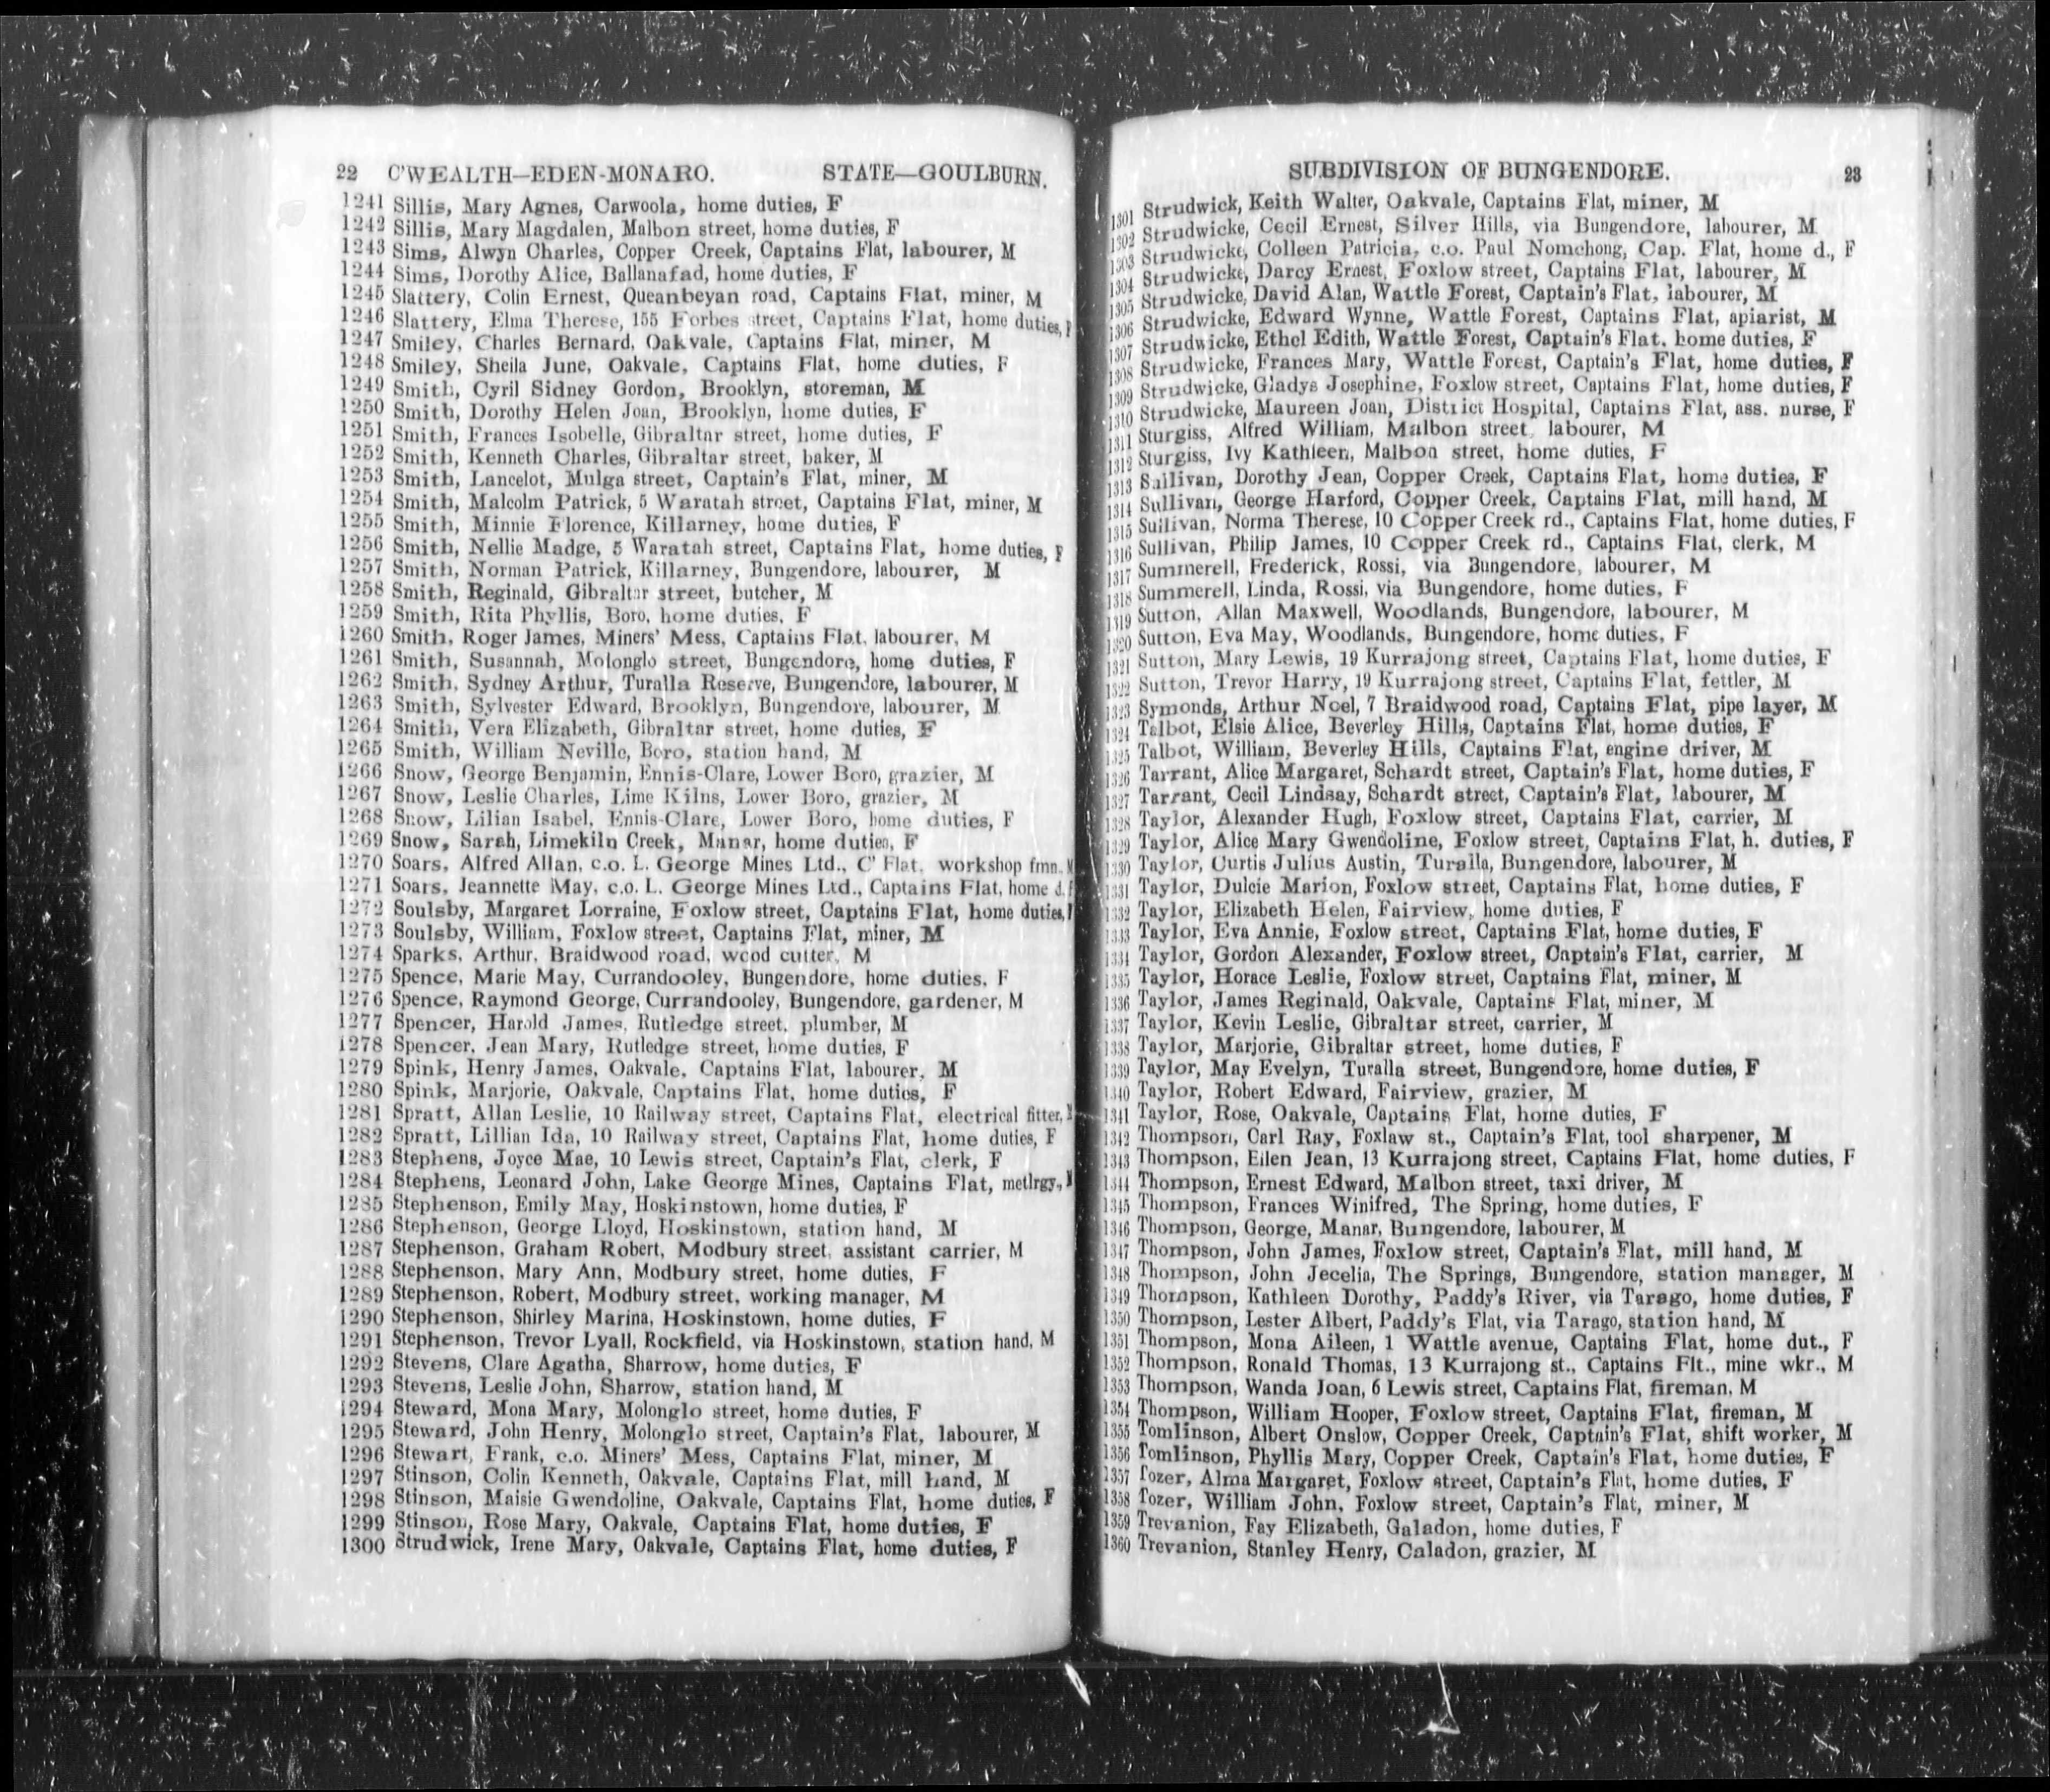 22 C'WEALTH—EDEN-MONARO. STATE—GOULBURN.
1241 Sillis, Mary Agnes, Carwoola, home duties, F
1242 Sillis, Mary Magdalen, Malbon street, home duties, F
1243 Sims, Alwyn Charles, Copper Creek, Captains Flat, labourer, M
1244 Sims, Dorothy Alice, Ballanafad, home duties, F
1245 Slattery, Colin Ernest, Queanbeyan road, Captains Flat, miner, M
1246 Slattery, Elma Therese, 155 Forbes street, Captains Flat, home duties, F
1247 Smiley, Charles Bernard, Oakvale, Captains Flat, miner, M
1248 Smiley, Sheila June, Oakvale, Captains Flat, home duties, F
1249 Smith, Cyril Sidney Gordon, Brooklyn, storeman, M
1250 Smith, Dorothy Helen Joan, Brooklyn, home duties, F
1251 Smith, Frances Isobelle, Gibraltar street, home duties, F
1252 Smith, Kenneth Charles, Gibraltar street, baker, M
1253 Smith, Lancelot, Mulga street, Captain's Flat, miner, M
1254 Smith, Malcolm Patrick, 5 Waratah street, Captains Flat, miner, M
1255 Smith, Minnie Florence, Killarney, home duties, F
1256 Smith, Nellie Madge, 5 Waratah street, Captains Flat, home duties, F
1257 Smith, Norman Patrick, Killarney, Bungendore, labourer, M
1258 Smith, Reginald, Gibraltar street, butcher, M
1259 Smith, Rita Phyllis, Boro, home duties, F
1260 Smith, Roger James, Miners' Mess, Captains Flat, labourer, M
1261 Smith, Susannah, Molonglo street, Bungendore, home duties, F
1262 Smith, Sydney Arthur, Turalla Reserve, Bungendore, labourer, M
1263 Smith, Sylvester Edward, Brooklyn, Bungendore, labourer, M
1264 Smith, Vera Elizabeth, Gibraltar street, home duties, F
1265 Smith, William Neville, Boro, station hand, M
1266 Snow, George Benjamin, Ennis-Clare, Lower Boro, grazier, M
1267 Snow, Leslie Charles, Lime Kilns, Lower Boro, grazier, M
1268 Snow, Lilian Isabel, Ennis-Clare, Lower Boro, home duties, F
1269 Snow, Sarah, Limekiln Creek, Manar, home duties, F
1270 Soars, Alfred Allan, c.o. L. George Mines Ltd., C' Flat, workshop fmn., M
1271 Soars, Jeannette May, c.o. L. George Mines Ltd., Captains Flat, home d. F
1272 Soulsby, Margaret Lorraine, Foxlow street, Captains Flat, home duties, F
1273 Soulsby, William, Foxlow street, Captains Flat, miner, M
1274 Sparks, Arthur, Braidwood road, wood cutter, M
1275 Spence, Marie May, Currandooley, Bungendore, home duties, F
1276 Spence, Raymond George, Currandooley, Bungendore, gardener, M
1277 Spencer, Harold James, Rutledge street, plumber, M
1278 Spencer, Jean Mary, Rutledge street, home duties, F
1279 Spink, Henry James, Oakvale, Captains Flat, labourer, M
1280 Spink, Marjorie, Oakvale, Captains Flat, home duties, F
1281 Spratt, Allan Leslie, 10 Railway street, Captains Flat, electrical fitter,
1282 Spratt, Lillian Ida, 10 Railway street, Captains Flat, home duties, F
1283 Stephens, Joyce Mae, 10 Lewis street, Captain's Flat, clerk, F
1284 Stephens, Leonard John, Lake George Mines, Captains Flat, metlrgy.,
1285 Stephenson, Emily May, Hoskinstown, home duties, F
1286 Stephenson, George Lloyd, Hoskinstown, station hand, M
1287 Stephenson, Graham Robert, Modbury street, assistant carrier, M
1288 Stephenson, Mary Ann, Modbury street, home duties, F
1289 Stephenson, Robert, Modbury street, working manager, M
1290 Stephenson, Shirley Marina, Hoskinstown, home duties, F
1291 Stephenson, Trevor Lyall, Rockfield, via Hoskinstown, station hand, M
1292 Stevens, Clare Agatha, Sharrow, home duties, F
1293 Stevens, Leslie John, Sharrow, station hand, M
1294 Steward, Mona Mary, Molonglo street, home duties, F
1295 Steward, John Henry, Molonglo street, Captain's Flat, labourer, M
1296 Stewart, Frank, c.o. Miners' Mess, Captains Flat, miner, M
1297 Stinson, Colin Kenneth, Oakvale, Captains Flat, mill hand, M
1298 Stinson, Maisie Gwendoline, Oakvale, Captains Flat, home duties, F
1299 Stinson, Rose Mary, Oakvale, Captains Flat, home duties, F
1300 Strudwick, Irene Mary, Oakvale, Captains Flat, home duties, F
SUBDIVISION OF BUNGENDORE. 23
1301 Strudwick, Keith Walter, Oakvale, Captains Flat, miner, M
1302 Strudwicke, Cecil Ernest, Silver Hills, via Bungendore, labourer, M
1303 Strudwicke, Colleen Patricia, c.o. Paul Nomchong, Cap. Flat, home d., F
1304 Strudwicke, Darcy Ernest, Foxlow street, Captains Flat, labourer, M
1305 Strudwicke, David Alan, Wattle Forest, Captain's Flat, labourer, M
1306 Strudwicke, Edward Wynne, Wattle Forest, Captains Flat, apiarist, M
1307 Strudwicke, Ethel Edith, Wattle Forest, Captain's Flat, home duties, F
1308 Strudwicke, Frances Mary, Wattle Forest, Captain's Flat, home duties, F
1309 Strudwicke, Gladys Josephine, Foxlow street, Captains Flat, home duties, F
1310 Strudwicke, Maureen Joan, District Hospital, Captains Flat, ass. nurse, F
1311 Sturgiss, Alfred William, Malbon street, labourer, M
1312 Sturgiss, Ivy Kathleen, Malbon street, home duties, F
1313 Sullivan, Dorothy Jean, Copper Creek, Captains Flat, home duties, F
1314 Sullivan, George Harford, Copper Creek, Captains Flat, mill hand, M
1315 Sullivan, Norma Therese, 10 Copper Creek rd., Captains Flat, home duties, F
1316 Sullivan, Philip James, 10 Copper Creek rd., Captains Flat, clerk, M
1317 Summerell, Frederick, Rossi, via Bungendore, labourer, M
1318 Summerell, Linda, Rossi, via Bungendore, home duties, F
1319 Sutton, Allan Maxwell, Woodlands, Bungendore, labourer, M
1320 Sutton, Eva May, Woodlands, Bungendore, home duties, F
1321 Sutton, Mary Lewis, 19 Kurrajong street, Captains Flat, home duties, F
1322 Sutton, Trevor Harry, 19 Kurrajong street, Captains Flat, fettler, M
1323 Symonds, Arthur Noel, 7 Braidwood road, Captains Flat, pipe layer, M
1324 Talbot, Elsie Alice, Beverley Hills, Captains Flat, home duties, F
1325 Talbot, William, Beverley Hills, Captains Flat, engine driver, M
1326 Tarrant, Alice Margaret, Schardt street, Captain's Flat, home duties, F
1327 Tarrant, Cecil Lindsay, Schardt street, Captain's Flat, labourer, M
1328 Taylor, Alexander Hugh, Foxlow street, Captains Flat, carrier, M
1329 Taylor, Alice Mary Gwendoline, Foxlow street, Captains Flat, h. duties, F
1330 Taylor, Curtis Julius Austin, Turalla, Bungendore, labourer, M
1331 Taylor, Dulcie Marion, Foxlow street, Captains Flat, home duties, F
1332 Taylor, Elizabeth Helen, Fairview, home duties, F
1333 Taylor, Eva Annie, Foxlow street, Captains Flat, home duties, F
1334 Taylor, Gordon Alexander, Foxlow street, Captain's Flat, carrier, M
1335 Taylor, Horace Leslie, Foxlow street, Captains Flat, miner, M
1336 Taylor, James Reginald, Oakvale, Captains Flat, miner, M
1337 Taylor, Kevin Leslie, Gibraltar street, carrier, M
1338 Taylor, Marjorie, Gibraltar street, home duties, F
1339 Taylor, May Evelyn, Turalla street, Bungendore, home duties, F
1340 Taylor, Robert Edward, Fairview, grazier, M
1341 Taylor, Rose, Oakvale, Captains Flat, home duties, F
1342 Thompson, Carl Ray, Foxlaw st., Captain's Flat, tool sharpener, M
1343 Thompson, Eilen Jean, 13 Kurrajong street, Captains Flat, home duties, F
1344 Thompson, Ernest Edward, Malbon street, taxi driver, M
1345 Thompson, Frances Winifred, The Spring, home duties, F
1346 Thompson, George, Manar, Bungendore, labourer, M
1347 Thompson, John James, Foxlow street, Captain's Flat, mill hand, M
1348 Thompson, John Jecelia, The Springs, Bungendore, station manager, M
1349 Thompson, Kathleen Dorothy, Paddy's River, via Tarago, home duties, F
1350 Thompson, Lester Albert, Paddy's Flat, via Tarago, station hand, M
1351 Thompson, Mona Aileen, 1 Wattle avenue, Captains Flat, home dut., F
1352 Thompson, Ronald Thomas, 13 Kurrajong st., Captains Flt., mine wkr., M
1353 Thompson, Wanda Joan, 6 Lewis street, Captains Flat, fireman, M
1354 Thompson, William Hooper, Foxlow street, Captains Flat, fireman, M
1355 Tomlinson, Albert Onslow, Copper Creek, Captain's Flat, shift worker, M
1356 Tomlinson, Phyllis Mary, Copper Creek, Captain's Flat, home duties, F
1357 Tozer, Alma Margaret, Foxlow street, Captain's Flat, home duties, F
1358 Tozer, William John, Foxlow street, Captain's Flat, miner, M
1359 Trevanion, Fay Elizabeth, Galadon, home duties, F
1360 Trevanion, Stanley Henry, Caladon, grazier, M